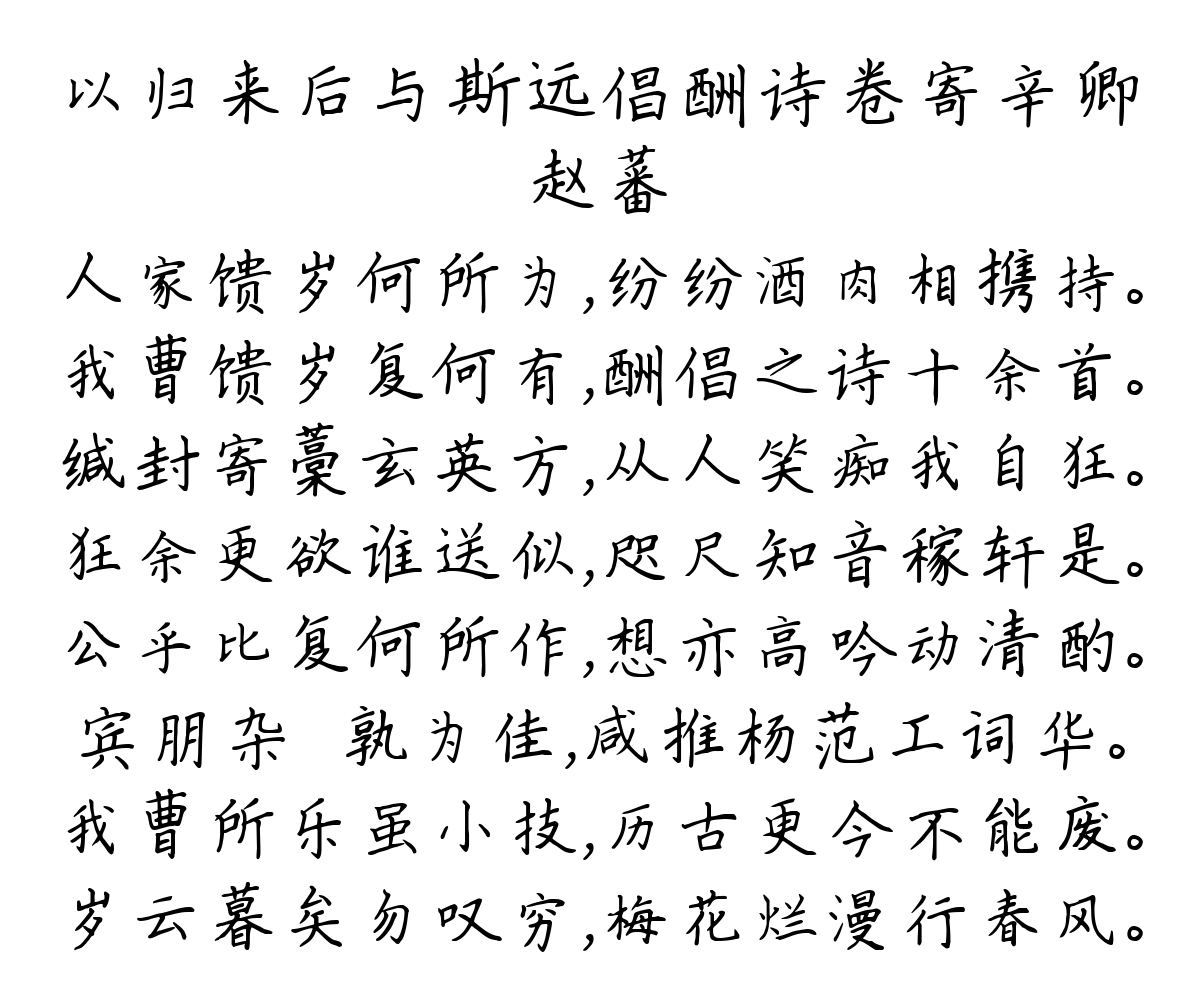 以归来后与斯远倡酬诗卷寄辛卿
赵蕃
人家馈岁何所为,纷纷酒肉相携持。
我曹馈岁复何有,酬倡之诗十余首。
缄封寄藁玄英方,从人笑痴我自狂。
狂余更欲谁送似,咫尺知音稼轩是。
公乎比复何所作,想亦高吟动清酌。
宾朋杂 孰为佳,咸推杨范工词华。
我曹所乐虽小技,历古更今不能废。
岁云暮矣勿叹穷,梅花烂漫行春风。